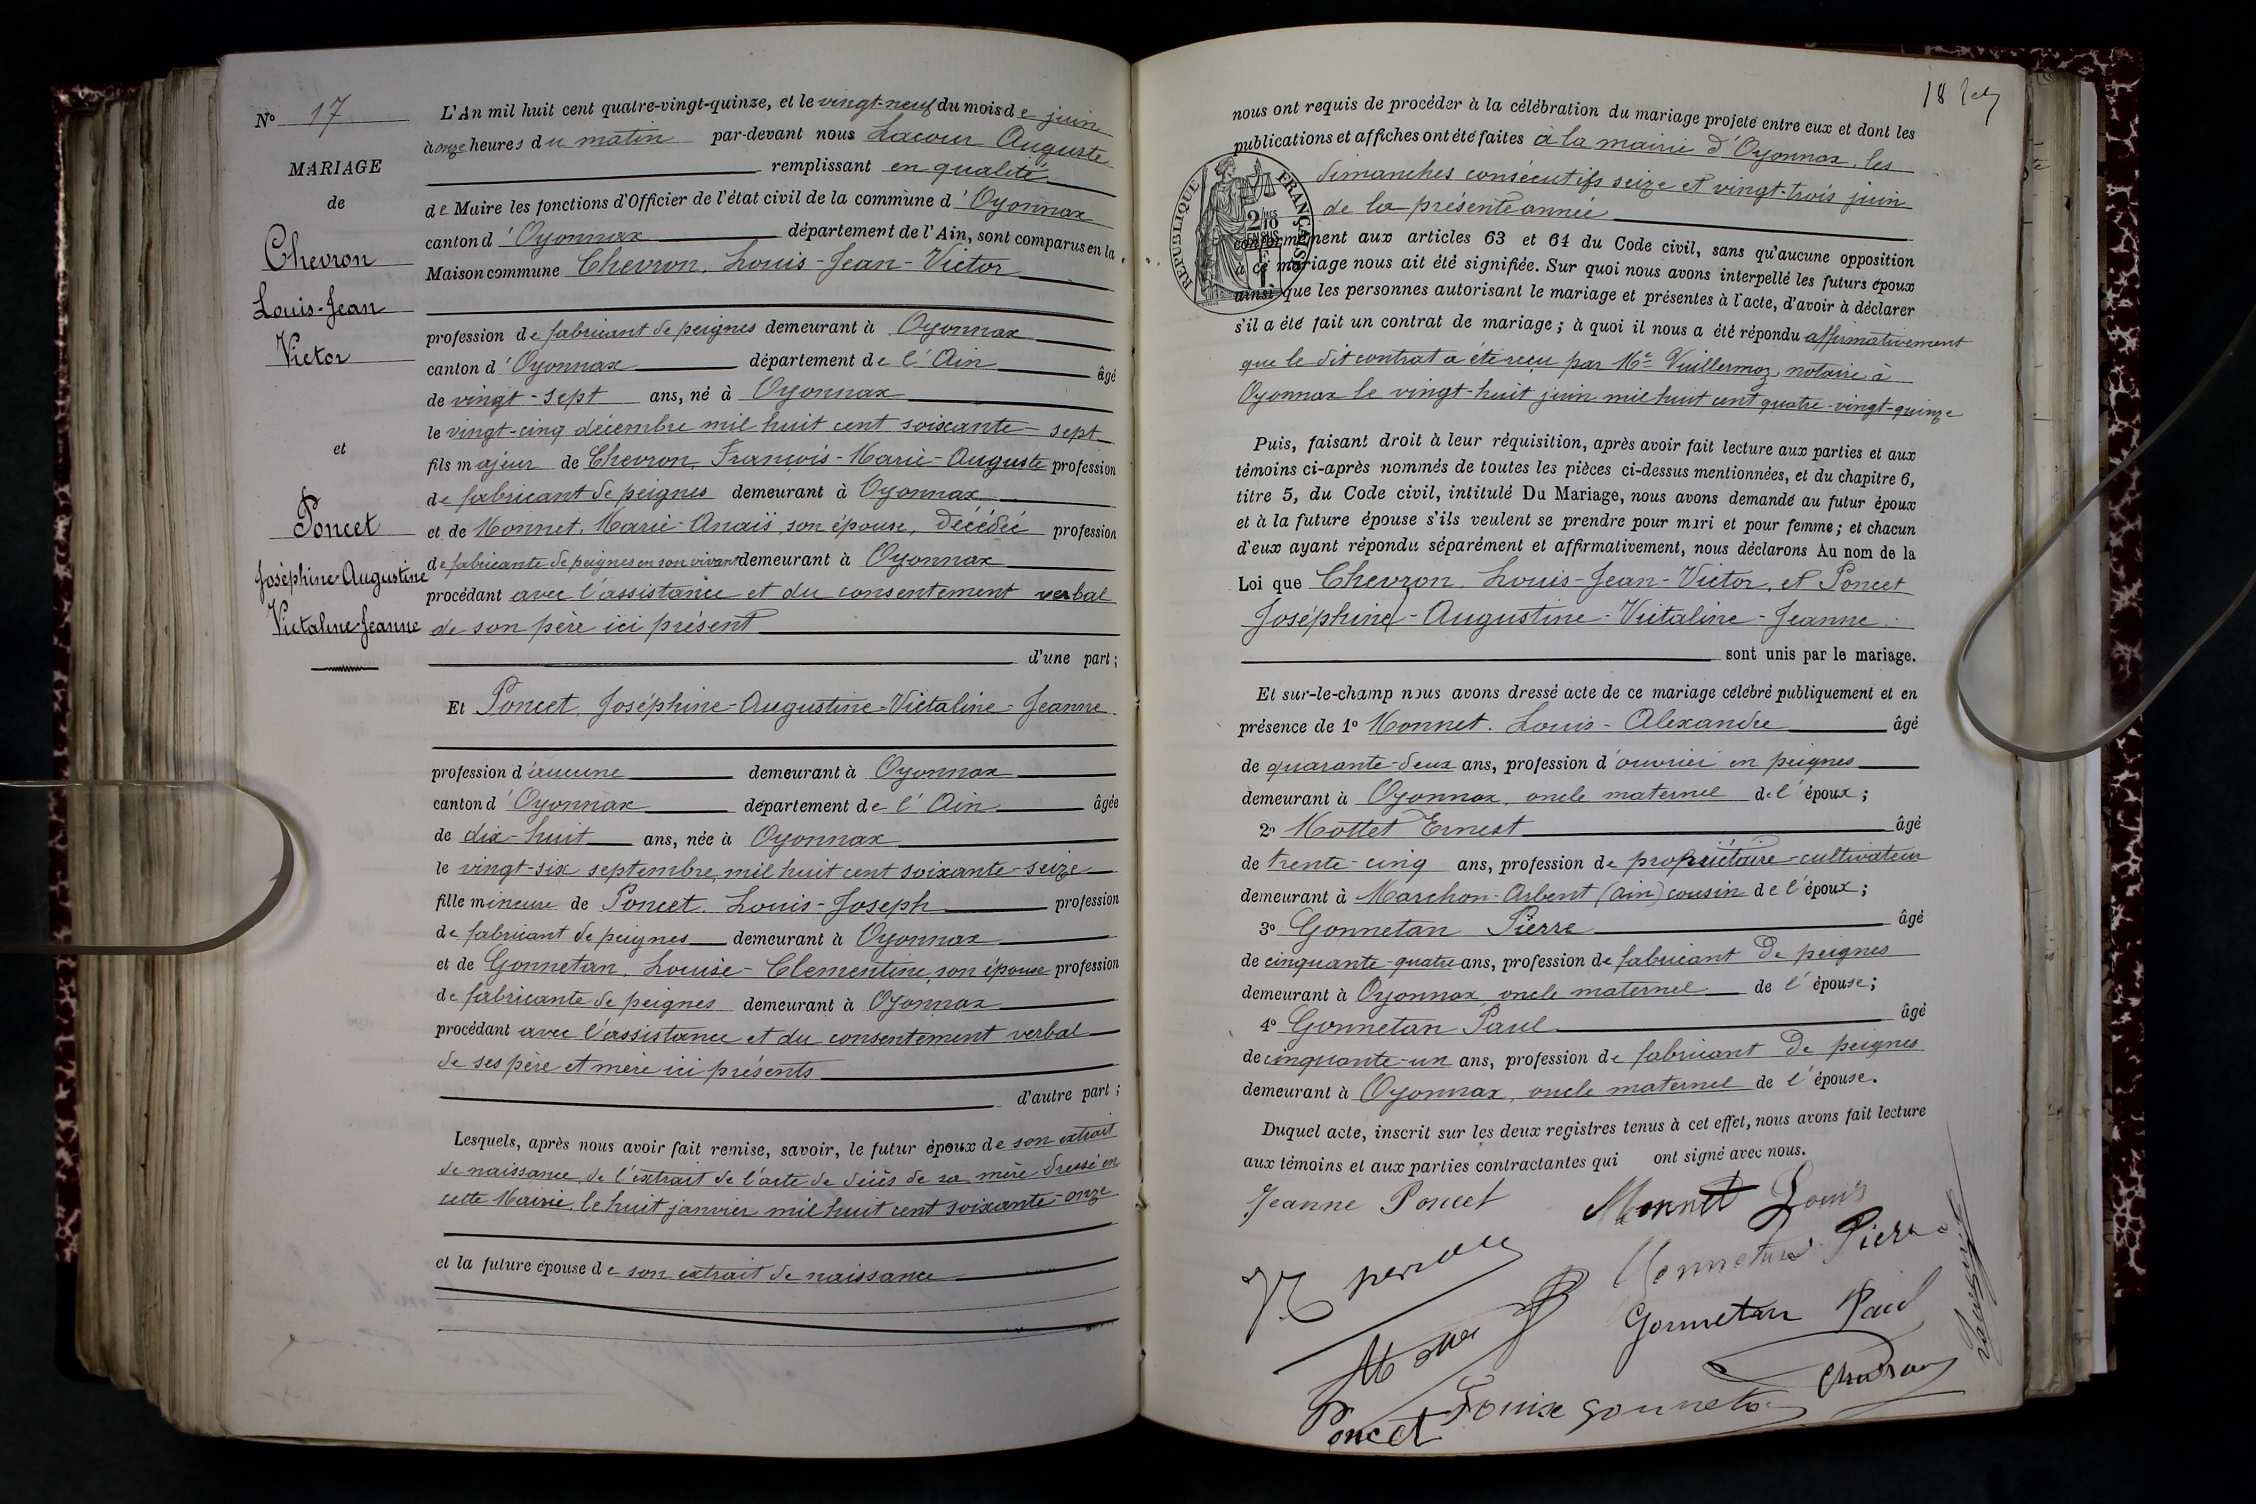 N° 17
MARIAGE
de
Chevron
Louis-Jean
Victor
et
Poncet
Joséphine-Augustine
Victaline-Jeanne
L'An mil huit cent quatre-vingt-quinze, et le vingt-neuf du mois de juin
à onze heures du matin par-devant nous Lacour Auguste
remplissant en qualité
de Maire les fonctions d'Officier de l'état civil de la commune d'Oyonnax
canton d'Oyonnax département de l'Ain, sont comparus en la
Maison commune Chevron, Louis-Jean-Victor
profession de fabricant de peignes demeurant à Oyonnax
canton d'Oyonnax département de l'Ain âgé
de vingt-sept ans, né à Oyonnax
le vingt-cinq décembre mil huit cent soixante-sept
fils majeur de Chevron, François-Marie-Auguste profession
de fabricant de peignes demeurant à Oyonnax
et de Monnet, Marie-Anaïs, son épouse, décédée profession
de fabricante de peignes en son vivant demeurant à Oyonnax
procédant avec l'assistance et du consentement verbal
de son père ici présent
d'une part;
Et Poncet, Joséphine-Augustine-Victaline-Jeanne
profession d'aucune demeurant à Oyonnax
canton d'Oyonnax département de l'Ain âgée
de dix-huit ans, née à Oyonnax
le vingt-six septembre, mil huit cent soixante-seize
fille mineure de Poncet, Louis-Joseph profession
de fabricant de peignes demeurant à Oyonnax
et de Gonnetan, Louise-Clementine, son épouse profession
de fabricante de peignes demeurant à Oyonnax
procédant avec l'assistance et du consentement verbal
de ses père et mère ici présents
d'autre part;
Lesquels, après nous avoir fait remise, savoir, le futur époux de son extrait
de naissance, de l'extrait de l'acte de décès de sa mère dressé en
cette Mairie, le huit janvier mil huit cent soixante-onze
et la future épouse de son extrait de naissance
18
nous ont requis de procéder à la célébration du mariage projeté entre eux et dont les
publications et affiches ont été faites à la mairie d'Oyonnax, les
dimanches consécutifs seize et vingt-trois juin
de la présente année
RÉPUBLIQUE FRANÇAISE
conformément aux articles 63 et 64 du Code civil, sans qu'aucune opposition
à ce mariage nous ait été signifiée. Sur quoi nous avons interpellé les futurs époux
ainsi que les personnes autorisant le mariage et présentes à l'acte, d'avoir à déclarer
s'il a été fait un contrat de mariage; à quoi il nous a été répondu affirmativement
que le dit contrat a été reçu par Me Vuillermoz, notaire à
Oyonnax le vingt-huit juin mil huit cent quatre-vingt-quinze
Puis, faisant droit à leur réquisition, après avoir fait lecture aux parties et aux
témoins ci-après nommés de toutes les pièces ci-dessus mentionnées, et du chapitre 6,
titre 5, du Code civil, intitulé Du Mariage, nous avons demandé au futur époux
et à la future épouse s'ils veulent se prendre pour mari et pour femme; et chacun
d'eux ayant répondu séparément et affirmativement, nous déclarons Au nom de la
Loi que Chevron, Louis-Jean-Victor, et Poncet
Joséphine-Augustine-Victaline-Jeanne
sont unis par le mariage.
Et sur-le-champ nous avons dressé acte de ce mariage célébré publiquement et en
présence de 1° Monnet, Louis-Alexandre âgé
de quarante-deux ans, profession d'ouvrier en peignes
demeurant à Oyonnax, oncle maternel de l'époux;
2° Mottet Ernest âgé
de trente-cinq ans, profession de propriétaire-cultivateur
demeurant à Marchon-Arbent (Ain) cousin de l'époux;
3° Gonnetan Pierre âgé
de cinquante-quatre ans, profession de fabricant de peignes
demeurant à Oyonnax, oncle maternel de l'épouse;
4° Gonnetan Paul âgé
de cinquante-un ans, profession de fabricant de peignes
demeurant à Oyonnax, oncle maternel de l'épouse.
Duquel acte, inscrit sur les deux registres tenus à cet effet, nous avons fait lecture
aux témoins et aux parties contractantes qui ont signé avec nous.
Jeanne Poncet Monnet Louis
Gonnetan Pierre
Gonnetan Paul
Poncet Louise Gonnetan